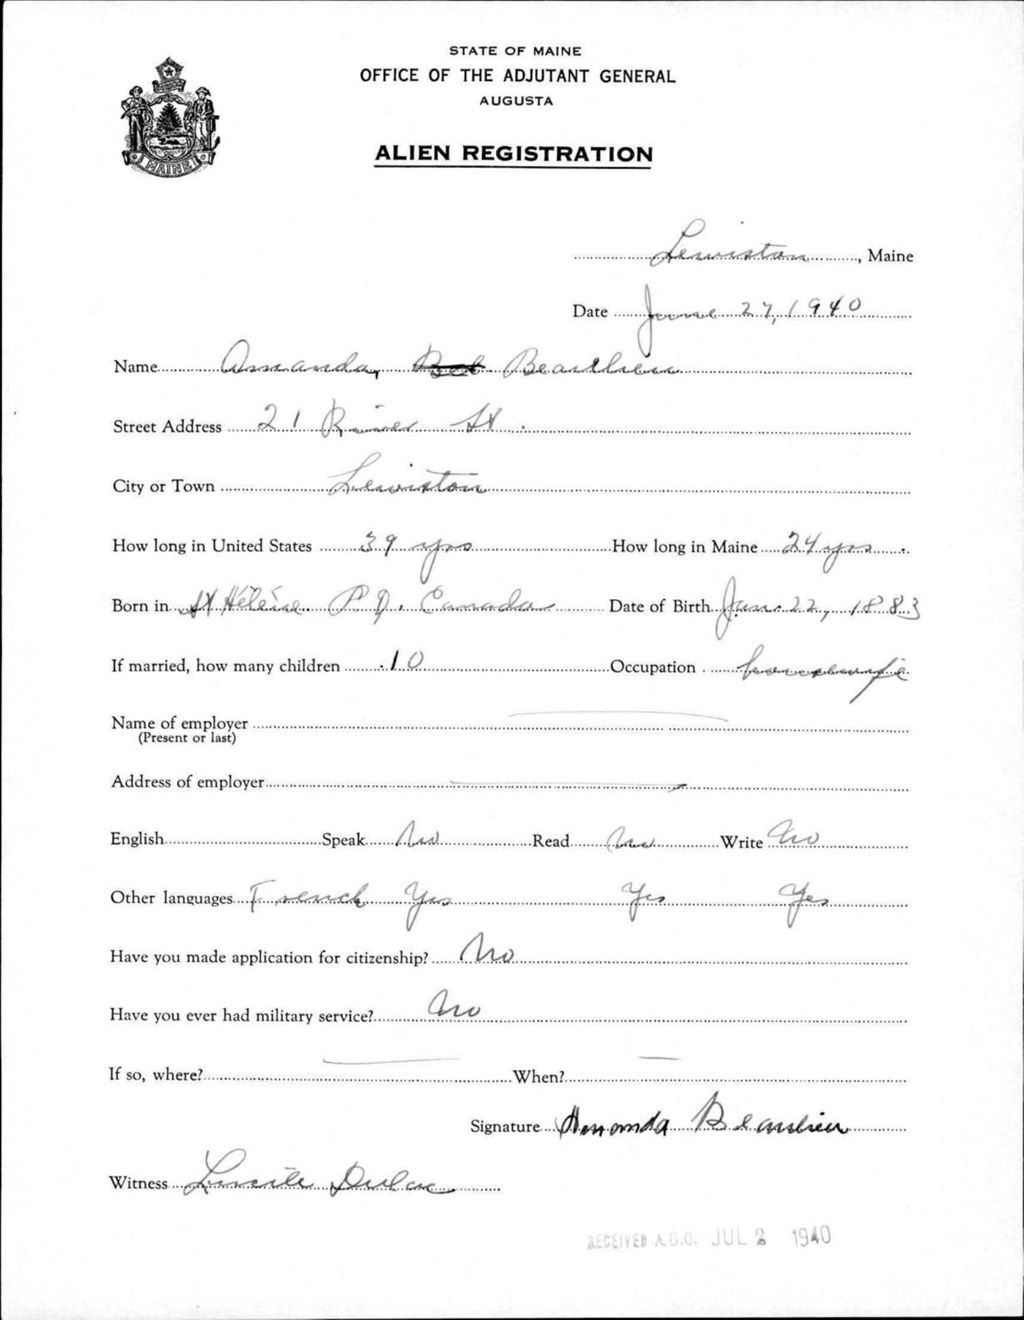 STATE OF MAINE
OFFICE OF THE ADJUTANT GENERAL
AUGUSTA
ALIEN REGISTRATION
MAINE
Lewiston, Maine
Date June 27, 1940
Name Amanda, Beaulieu
Street Address 21 River St.
City or Town Lewiston
How long in United States 39 yrs How long in Maine 24 yrs.
Born in St Hélène P.Q. Canada Date of Birth Jan. 22, 1883
If married, how many children 10 Occupation housewife
Name of employer
(Present or last)
Address of employer
English Speak No Read No Write No
Other languages French Yes Yes Yes
Have you made application for citizenship? No
Have you ever had military service? No
If so, where? When?
Signature Amanda Beaulieu
Witness Lucile Dulac
RECEIVED A.G.O. JUL 2 1940